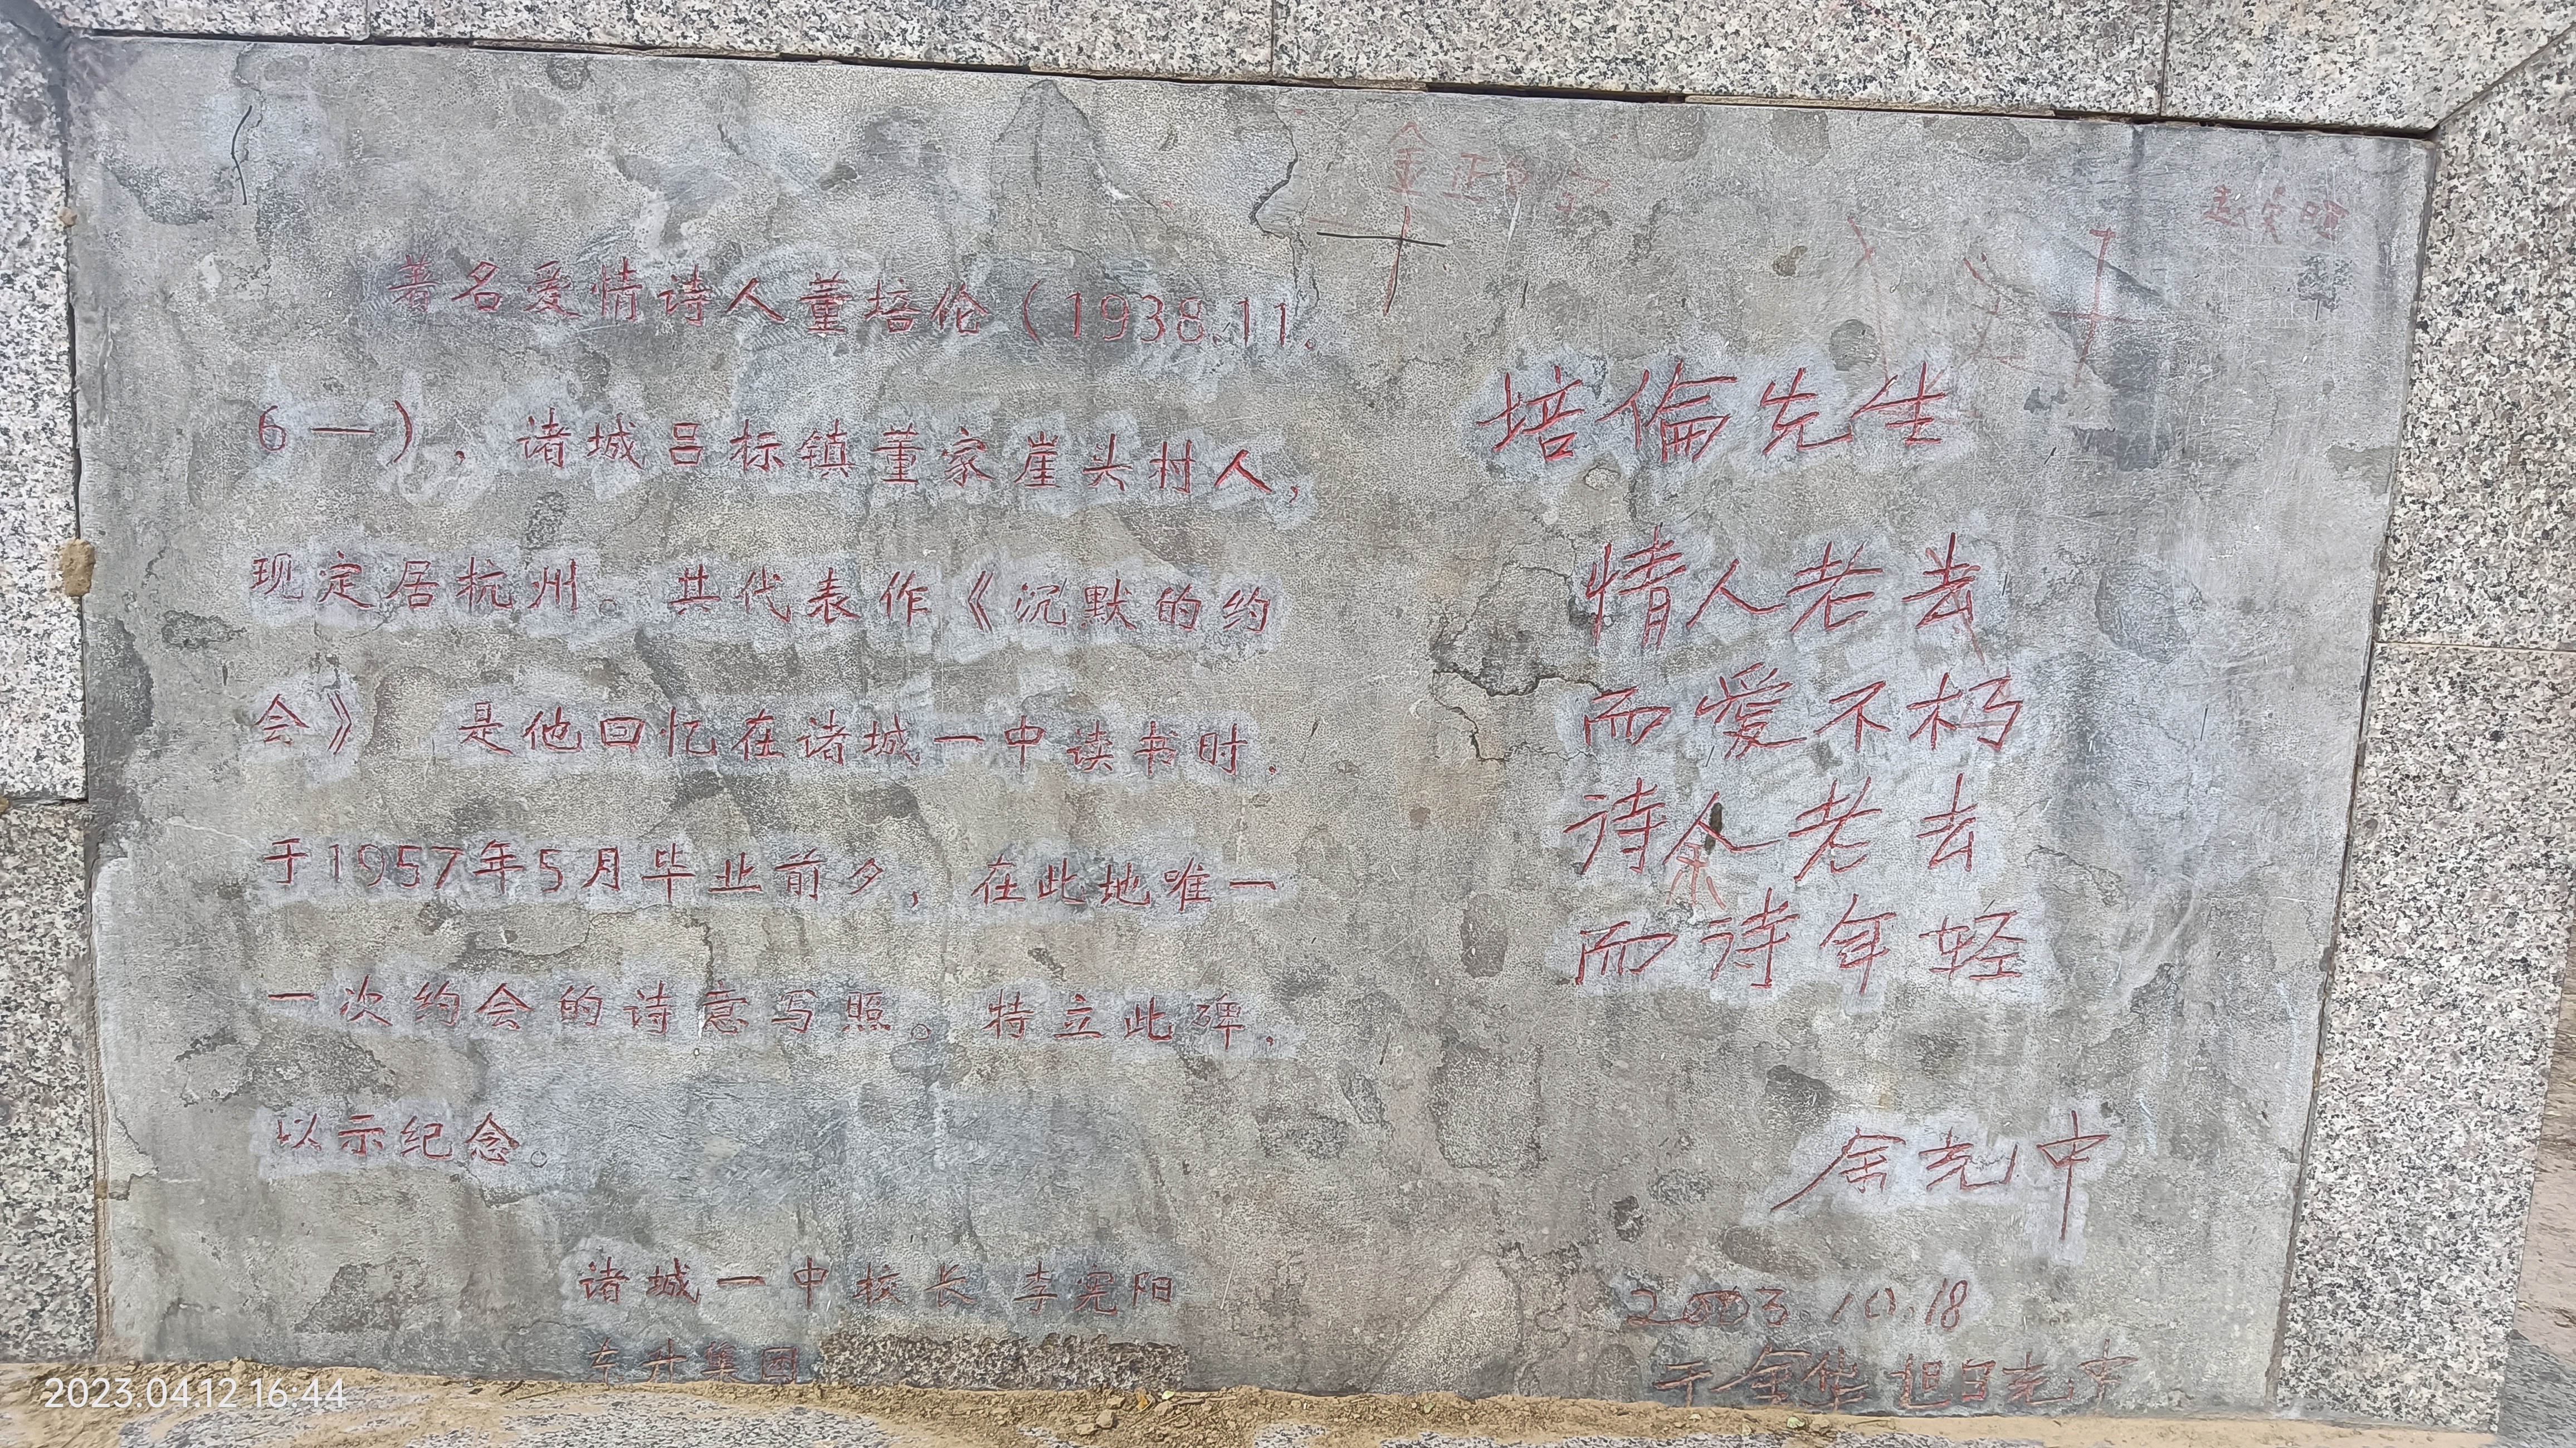 著名爱情诗人董培伦（1938.11.
6—），诸城吕标镇董家崖头村人，
现定居杭州。其代表作《沉默的约
会》 是他回忆在诸城一中读书时.
于1957年5月毕业前夕，在此地唯一
一次约会的诗意写照。特立此碑.
以示纪念。
诸城一中校长 李宪阳
东升集团
培倫先生
情人老去
而愛不朽
诗人老去
而诗年轻
余光中
2003.10.18
于金华
2023.04.12 16:44